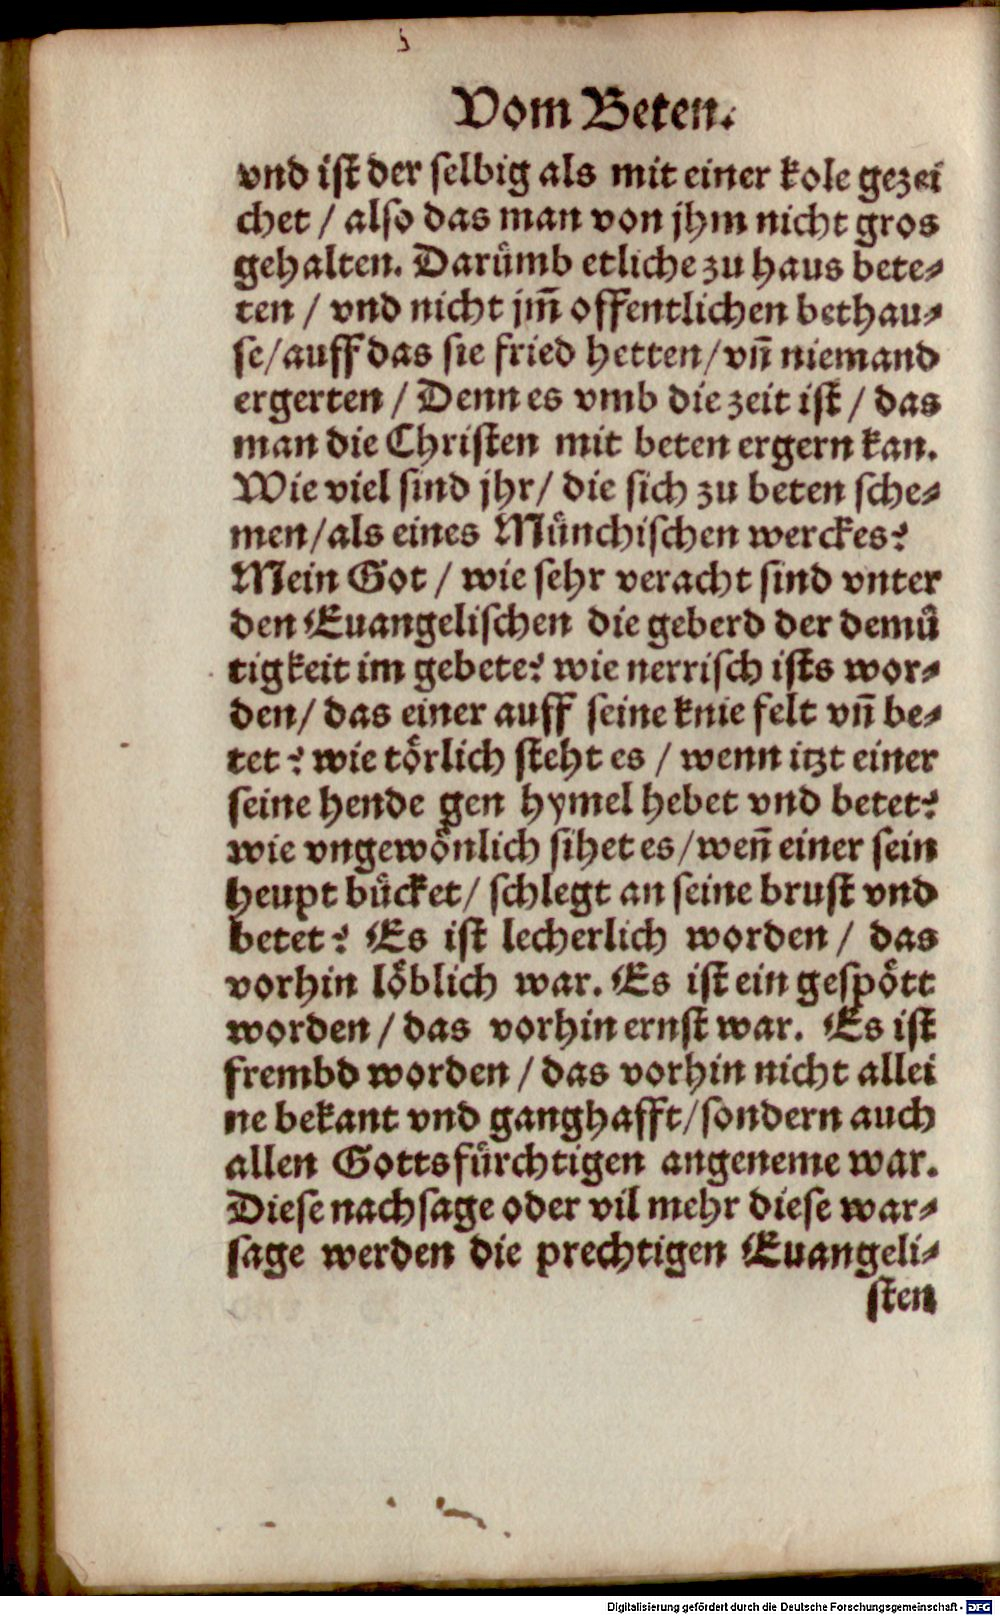 Vom Beten.
vnd ist der selbig als mit einer kole gezei
chet / also das man von jhm nicht gros
gehalten. Darümb etliche zu haus bete⸗
ten / vnd nicht jm̄ offentlichen bethau⸗
se/auff das sie fried hetten/vn̄ niemand
ergerten / Denn es vmb die zeit ist / das
man die Christen mit beten ergern kan.
Wie viel sind jhr/ die sich zu beten sche⸗
men/als eines Münchischen werckes?
Mein Got / wie sehr veracht sind vnter
den Euangelischen die geberd der demü
tigkeit im gebete? wie nerrisch ists wor⸗
den/ das einer auff seine knie felt vn̄ be⸗
tet? wie törlich steht es / wenn itzt einer
seine hende gen hymel hebet vnd betet?
wie vngewönlich sihet es/wen̄ einer sein
heupt bücket/ schlegt an seine brust vnd
betet? Es ist lecherlich worden / das
vorhin löblich war. Es ist ein gespött
worden / das vorhin ernst war. Es ist
frembd worden / das vorhin nicht allei
ne bekant vnd ganghafft/sondern auch
allen Gottsfürchtigen angeneme war.
Diese nachsage oder vil mehr diese war⸗
sage werden die prechtigen Euangeli⸗
sten
Digitalisierung gefördert durch die Deutsche Forschungsgemeinschaft - DFG